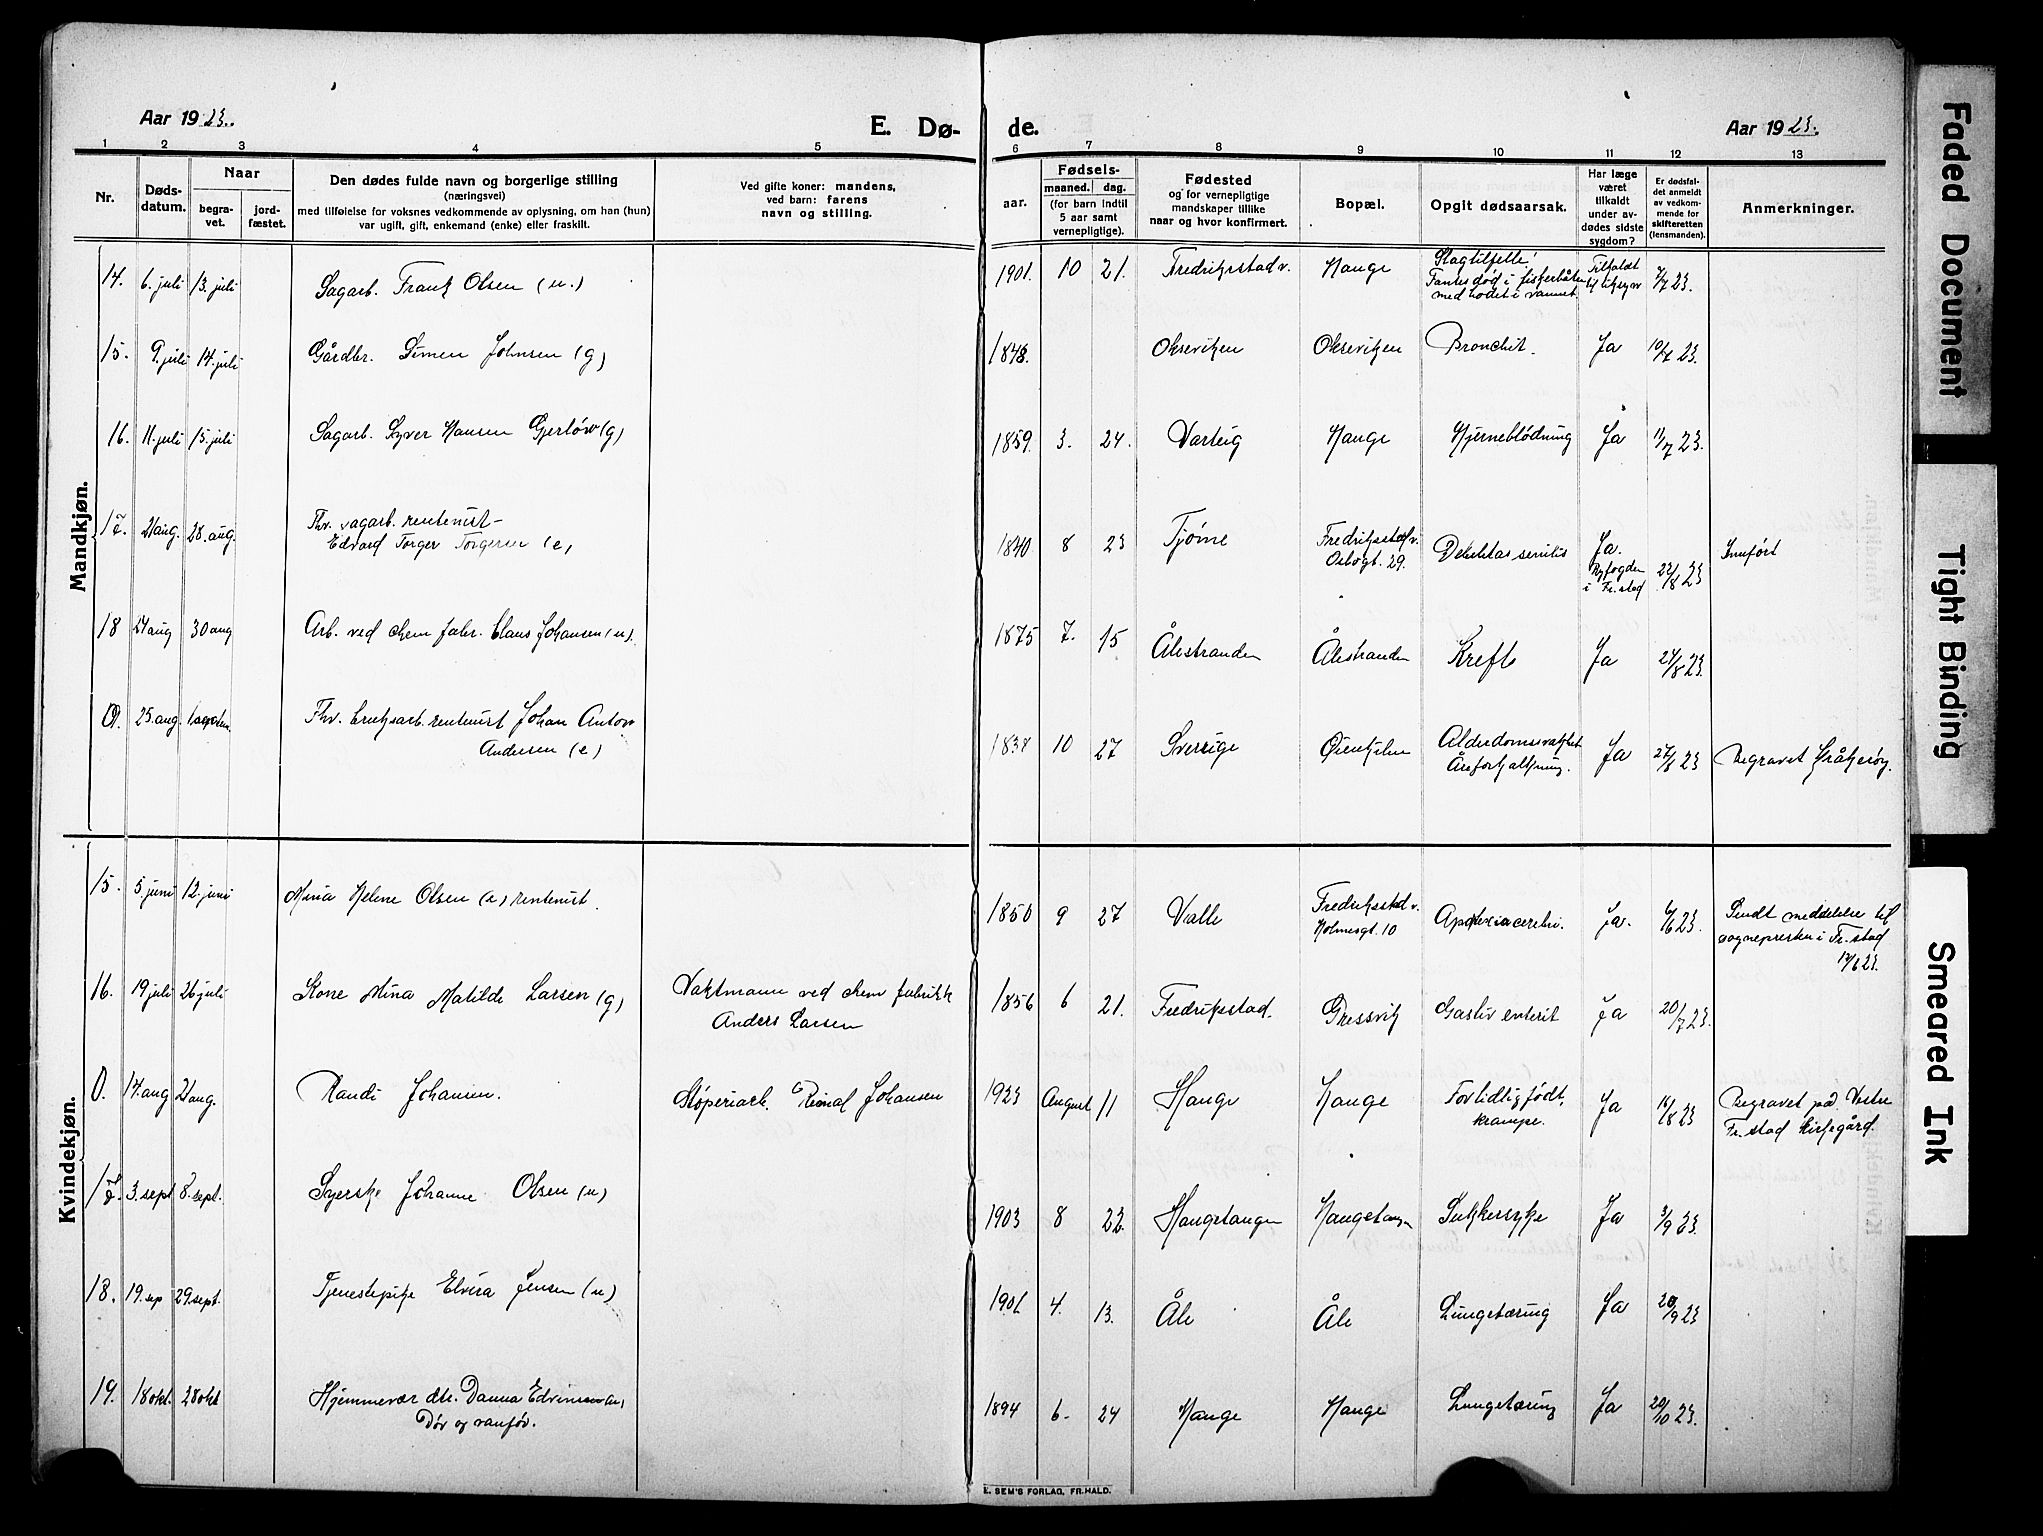 Aar 1923.
E. Dø-
1 2 3 4 5
Nr.
Døds-
datum.
Naar
begra-
vet.
jord-
fæstet.
Den dødes fulde navn og borgerlige stilling
(næringsvei)
med tilføielse for voksnes vedkommende av oplysning, om han (hun)
var ugift, gift, enkemand (enke) eller fraskilt.
Ved gifte koner: mandens,
ved barn: farens
navn og stilling.
Mandkjøn.
14. 6. juli 13. juli Sagarb. Frank Olsen (u.)
15. 9. juli 14. juli Gårdbr. Simen Johnsen (g)
16. 11. juli 15. juli Sagarb. Syver Hansen (g)
17. 21 aug. 28. aug. Fhv. sagarb. rentenist
Edvard Torger Torgersen (e)
18 24 aug 30 aug Arb. ved chem fabr. Claus Johansen (u)
0. 25. aug. 1 septem. Fhv. bruksarb. rentenist Johan Anton
Andersen (e)
Kvindekjøn.
15. 5. juni 12. juni Mina Helene Olsen (e) rentenist.
16. 19 juli 26 juli Kone Mina Matilde Larsen (g) Vaktmann ved chem fabrikk
Anders Larsen
0. 14. aug 21 aug. Randi Johansen. Støperiarb. Johansen
17. 3. sept 8. sept. Syerske Johanne Olsen (u)
18. 19. sep 29. sept. Tjenestepike Elvira Jensen (u)
19. 18 okt. 28 okt Hjemmevær. dtr. Danna
Døv og vanför.
de.
Aar 1923.
6 7 8 9 10 11 12 13
aar.
Fødsels-
maaned. dag.
(for barn indtil
5 aar samt
vernepligtige).
Fødested
og for vernepligtige
mandskaper tillike
naar og hvor konfirmert.
Bopæl.
Opgit dødsaarsak.
Har læge
været
tilkaldt
under av-
dødes sidste
sygdom?
Er dødsfal-
det anmeldt
av vedkom-
mende for
skifteretten
(lensmanden).
Anmerkninger.
1901. 10 21. Fredriksstad v. Hauge Slagtilfelle!
Fantes død i fiskerbåten
med hodet i vannet.
Tilkaldt
til liksyn
7/7 23.
1848. Oksviken Oksviken Bronchit. Ja 10/7 23.
1859. 3. 24. Varteig Hauge Hjerneblødning Ja 11/7 23.
1840 8 23 Tjøme Fredriksstad v.
Osbogt. 29.
Debilitas senilis Ja.
Byfogden
i Fr.stad
22/8 23 Innført
1875 7. 15 Ålestranden Ålestranden Kreft Ja 24/8 23.
10 27 Sverrige Ørenkilen Alderdomssvakhet
Åreforkalkning.
Ja 27/8 23 Begravet Kråkerøy.
1850 9 27 Valle Fredriksstad v.
Holmesgt. 10
Apoplexia cerebri. Ja. 6/6 23. Sendt meddelelse til
sognepresten i Fr.stad
1856 6 21. Fredriksstad. Gressvik enterit Ja 20/7 23.
1923 August 11 Hauge Hauge For tidlig født,
krampe.
Ja 18/8 23 Begravet på Vestre
Fr.stad kirkegård.
1903 8 22. Haugetangen Haugetangen Sukkersyke Ja 3/9 23.
1901 4. 13. Åle Åle Lungetæring Ja 20/9 23
1894 6. 24 Hauge Hauge Lungetæring Ja 20/10 23.
E. SEM'S FORLAG, FR.HALD.
Faded Document
Tight Binding
Smeared Ink